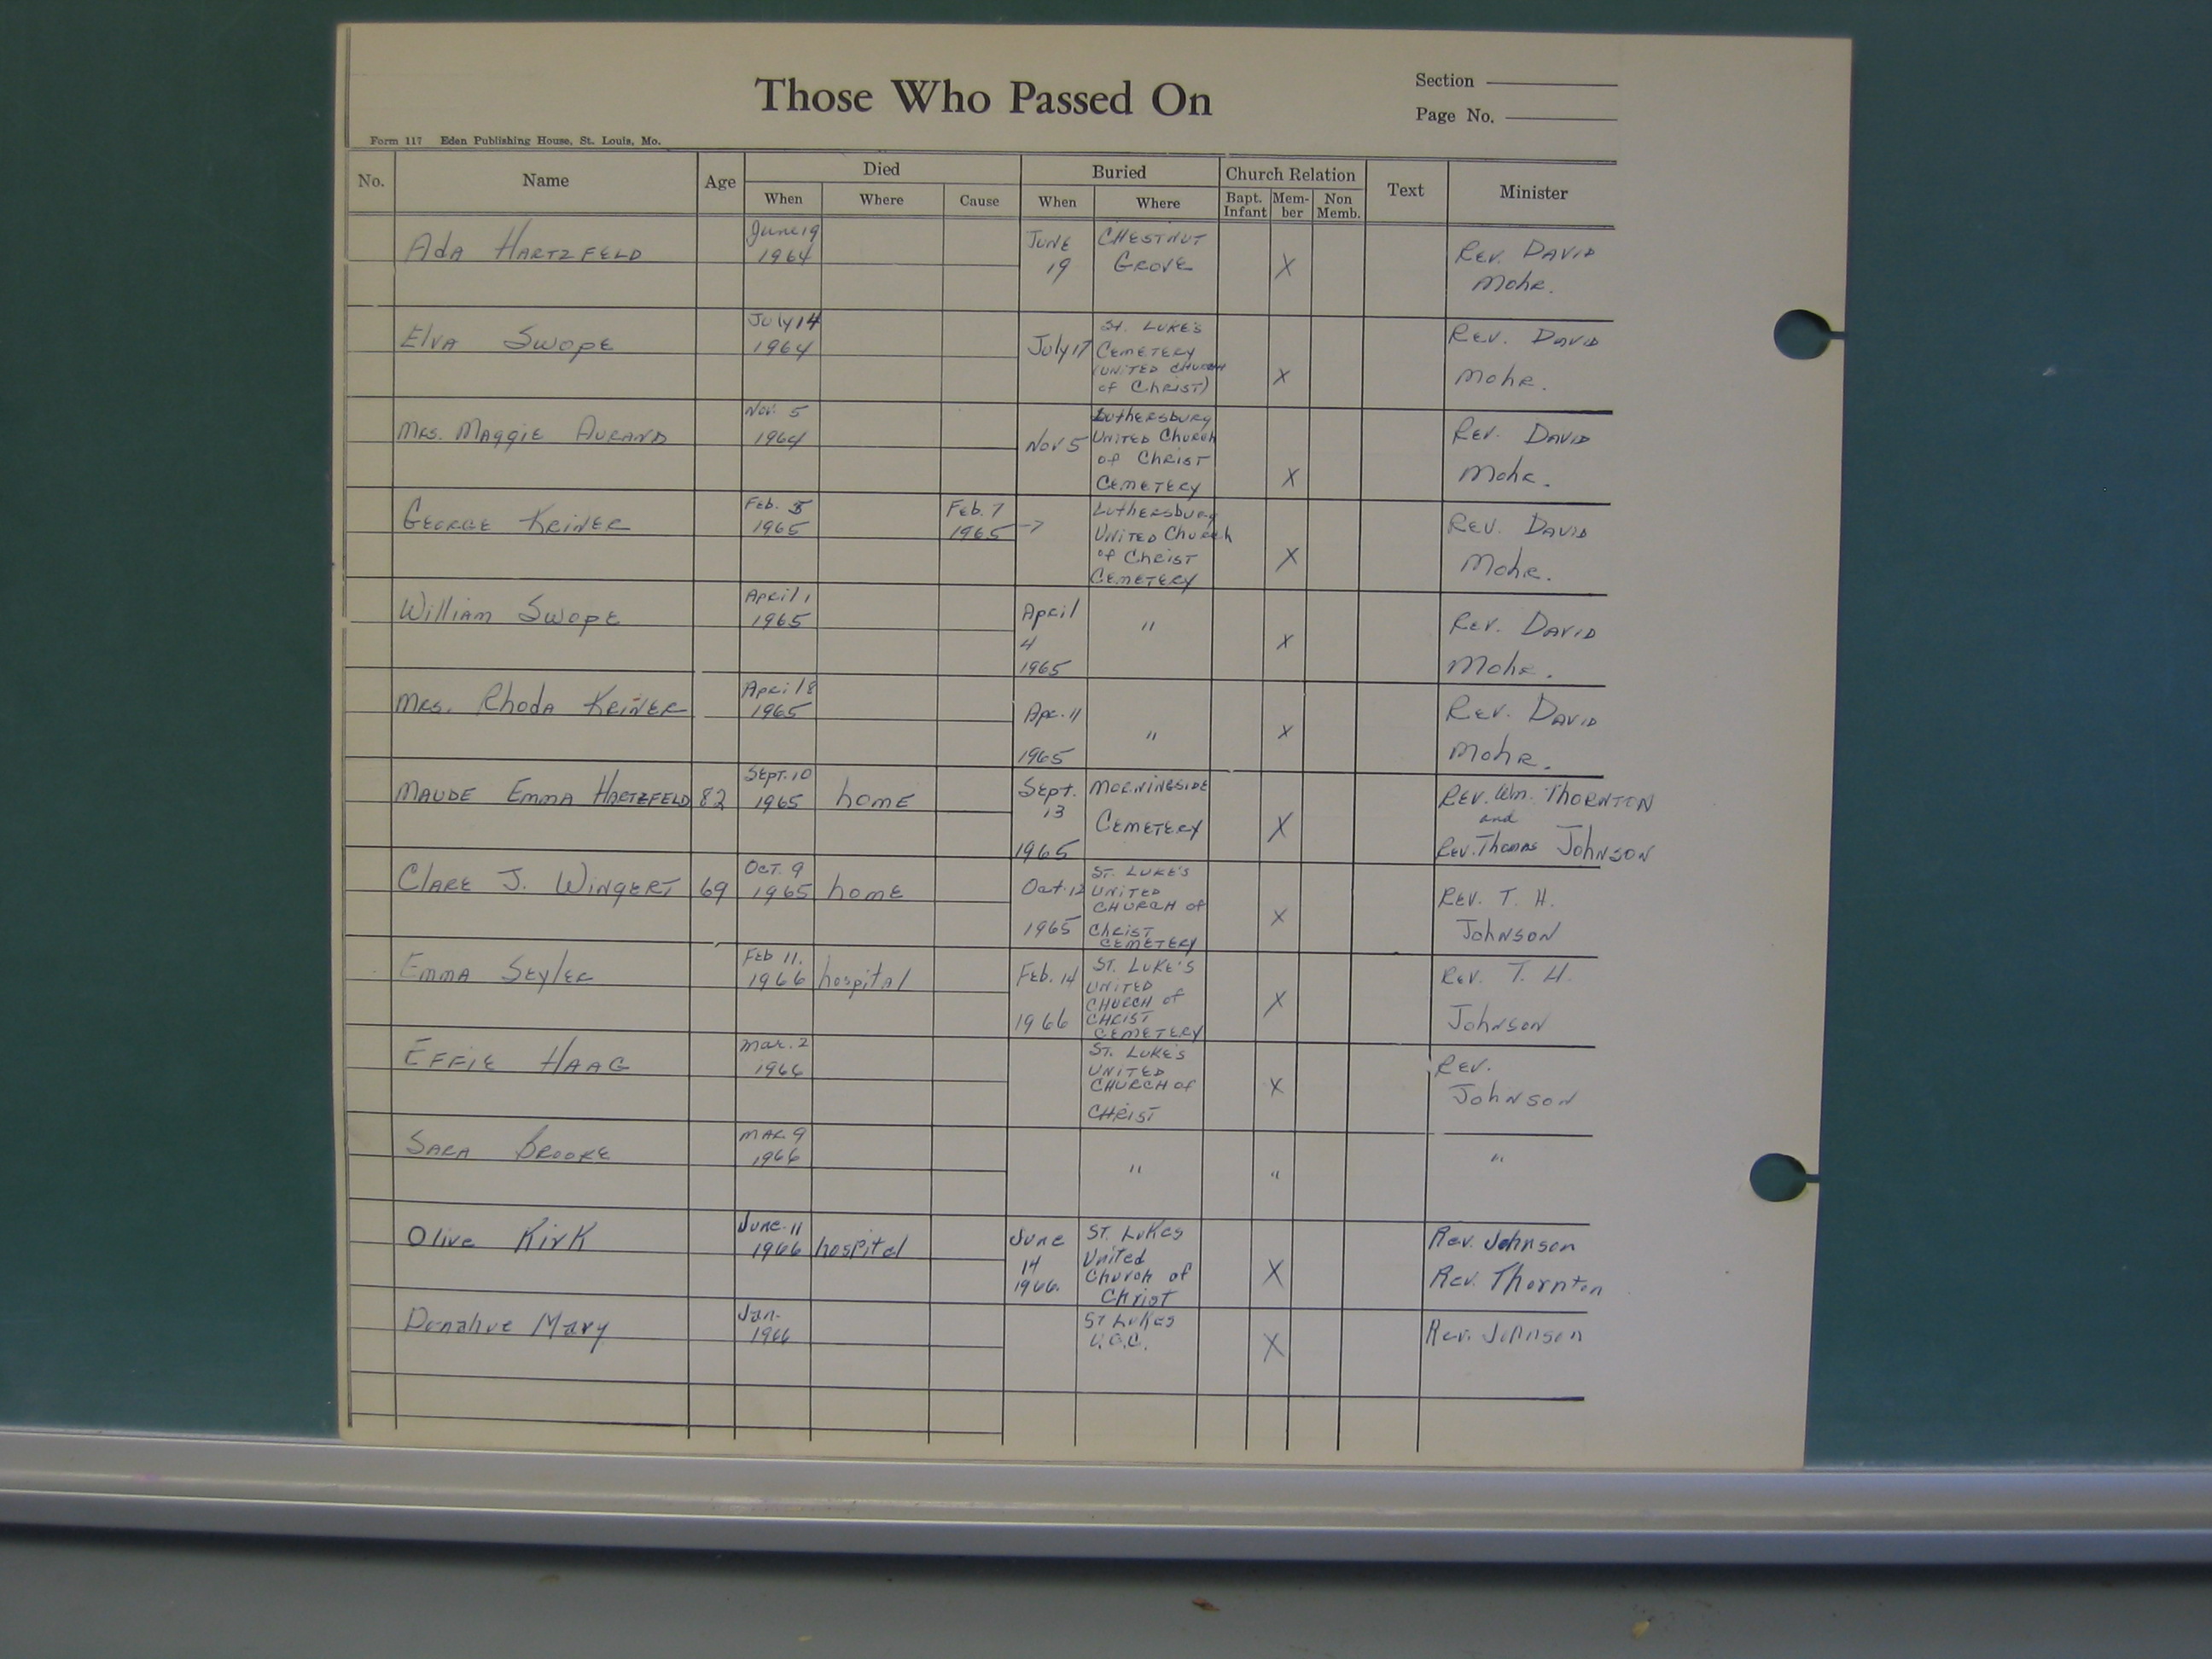 Those Who Passed On
Section
Page No.
Form 117 Eden Publishing House, St. Louis, Mo.
No. Name Age Died Buried Church Relation Text Minister
When Where Cause When Where Bapt. Infant Mem-ber Non Memb.
Ada Hartzfeld June 19 1964 June 19 Chestnut Grove X Rev. David Mohr.
Elva Swope July 14 1964 July 17 St. Luke's Cemetery (United Church of Christ) X Rev. David Mohr.
Mrs. Maggie Aurand Nov. 5 1964 Nov 5 Luthersburg United Church of Christ Cemetery X Rev. David Mohr.
George Kriner Feb. 5 1965 Feb. 7 1965 → Luthersburg United Church of Christ Cemetery X Rev. David Mohr.
William Swope April 1 1965 April 4 1965 " X Rev. David Mohr.
Mrs. Rhoda Kriner April 8 1965 Apr. 11 1965 " X Rev. David Mohr.
Maude Emma Hartzfeld 82 Sept. 10 1965 home Sept. 13 1965 Morningside Cemetery X Rev. Wm. Thornton and Rev. Thomas Johnson
Clare J. Wingert 69 Oct. 9 1965 home Oct. 12 1965 St. Luke's United Church of Christ Cemetery X Rev. T. H. Johnson
Emma Seyler Feb 11. 1966 hospital Feb. 14 1966 St. Luke's United Church of Christ Cemetery X Rev. T. H. Johnson
Effie Haag Mar. 2 1966 St. Luke's United Church of Christ X Rev. Johnson
Sara Brooke Mar 9 1966 " " "
Olive Kirk June 11 1966 hospital June 14 1966. St. Lukes United Church of Christ X Rev. Johnson Rev. Thornton
Donahue Mary Jan. 1966 St Lukes U.C.C. X Rev. Johnson